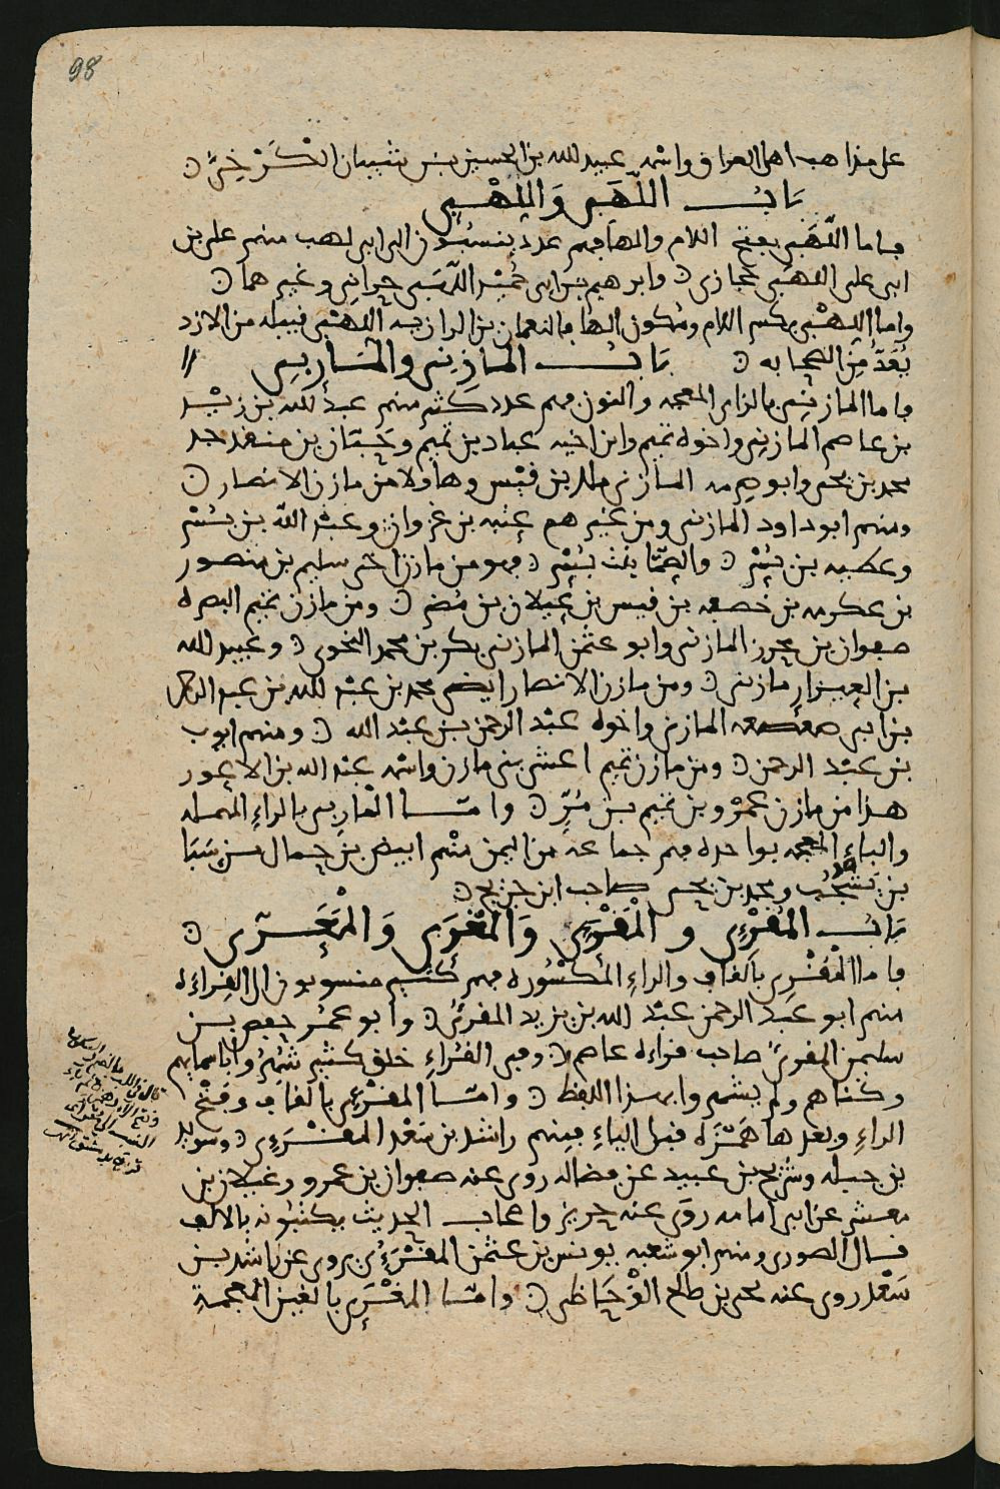 98
على مذاهب اهل العراق واسمه عبيد الله بن الحسين بن شيبان الكَرْخِيّ
بَابُ اللَّهَبِي وَاللِّهْبِي
فاما اللَّهَبِي بفتح اللام والهاء فهم عدد ينسبون الى ابي لهب منهم علي بن
ابي علي اللهبي حجازي وابرهيم بن ابي حُمَيْد اللهَبي حراني وغيرهما
واما اللِّهْبي بكسر اللام وسُكون الها فالنعمان بن الرازيه اللهبي قبيله من الازد
يُعَدُّ مِنَ الصحابه بَابُ المازِنِي والمَارِبِي
فاما المازني بالزاي المعجمه والنون فهم عدد كثير منهم عبد الله بن زيْد
بن عاصم المازني واخوه تميم وابن اخيه عباد بن تميم وحَبَّان بن منقذ جد
محمد بن يحيى وابو صِرمه المازني ملك بن قيْس وهاولا من مازن الانصار
ومنهم ابو داود المازني ومن غيرهم عتبه بن غزوان وعبْد الله بن بُسْر
وعطيه بن بُسْر والصمّا بنت بُسْر فهو من مازن اخي سليم بن منصور
بن عكرمه بن خصفه بن قيس بن عَيلان بن مُضر ومن مازن تميم البصره
صفوان بن محرز المازني وابو عثمن المازني بكر بن محمد النحوي وعبيد الله
بن العيزار مازني ومن مازن الانصار ايضى محمد بن عبْد الله بن عبد الرحمن
بن ابي صعصعه المازني واخوه عبْد الرحمن بن عبْد الله ومنهم ايوب
بن عبْد الرحمن ومن مازن تميم اعشى بني مازن واسمه عبْد الله بن الاعور
هذا من مازن عمْرو بن تميم بن مُرٍّ وامّا المارِبي بالراءِ المهمله
والباءِ المعجمه بواحده فهم جماعه من اليمن منْهم ابيض بن حمال من سَبَا
بن يَشْجُب ومحمد بن يحيى صاحب ابن جريج
بَابُ المُقْرِءِي و المَقْرَءِي وَالمَغْرَبِي وَالمَعَرّي
فاما المُقْرِي بالقاف والراءِ المكسُوره فهم كثير منسوبون الى القِراءَه
منهم ابو عبْد الرحمن عبْد الله بن يزيد المقرئُ وابو عمر حفص بن
سليمن المقرئ صاحب قراءه عاصم وفي القُرّاءِ خلق كثير شُهِرُوا باسمايهم
وكناهم ولم يشهروا بهذا اللفظ وامّا المقرَءِي بالقاف وفتْح
الراءِ وبعدها همْزَه قبل الياءِ فمنهم راشد بن سَعْد المقْرَءِي وسويد
بن جبله وشريح بن عبيد عن فضاله روى عنه صفوان بن عمرو وغيلان بن
معشر عن ابي امامه روَى عنه حريز واصحاب الحديث يكتبُونه بالالف
قال الصوري ومنهم ابو شعبه يونس بن عثمن المقْرَءِي يروي عن راشد بن
سَعْد روى عنه يحيى بن صالح الوُحَاظي وامّا المغْرَبي بالغين المعجمة